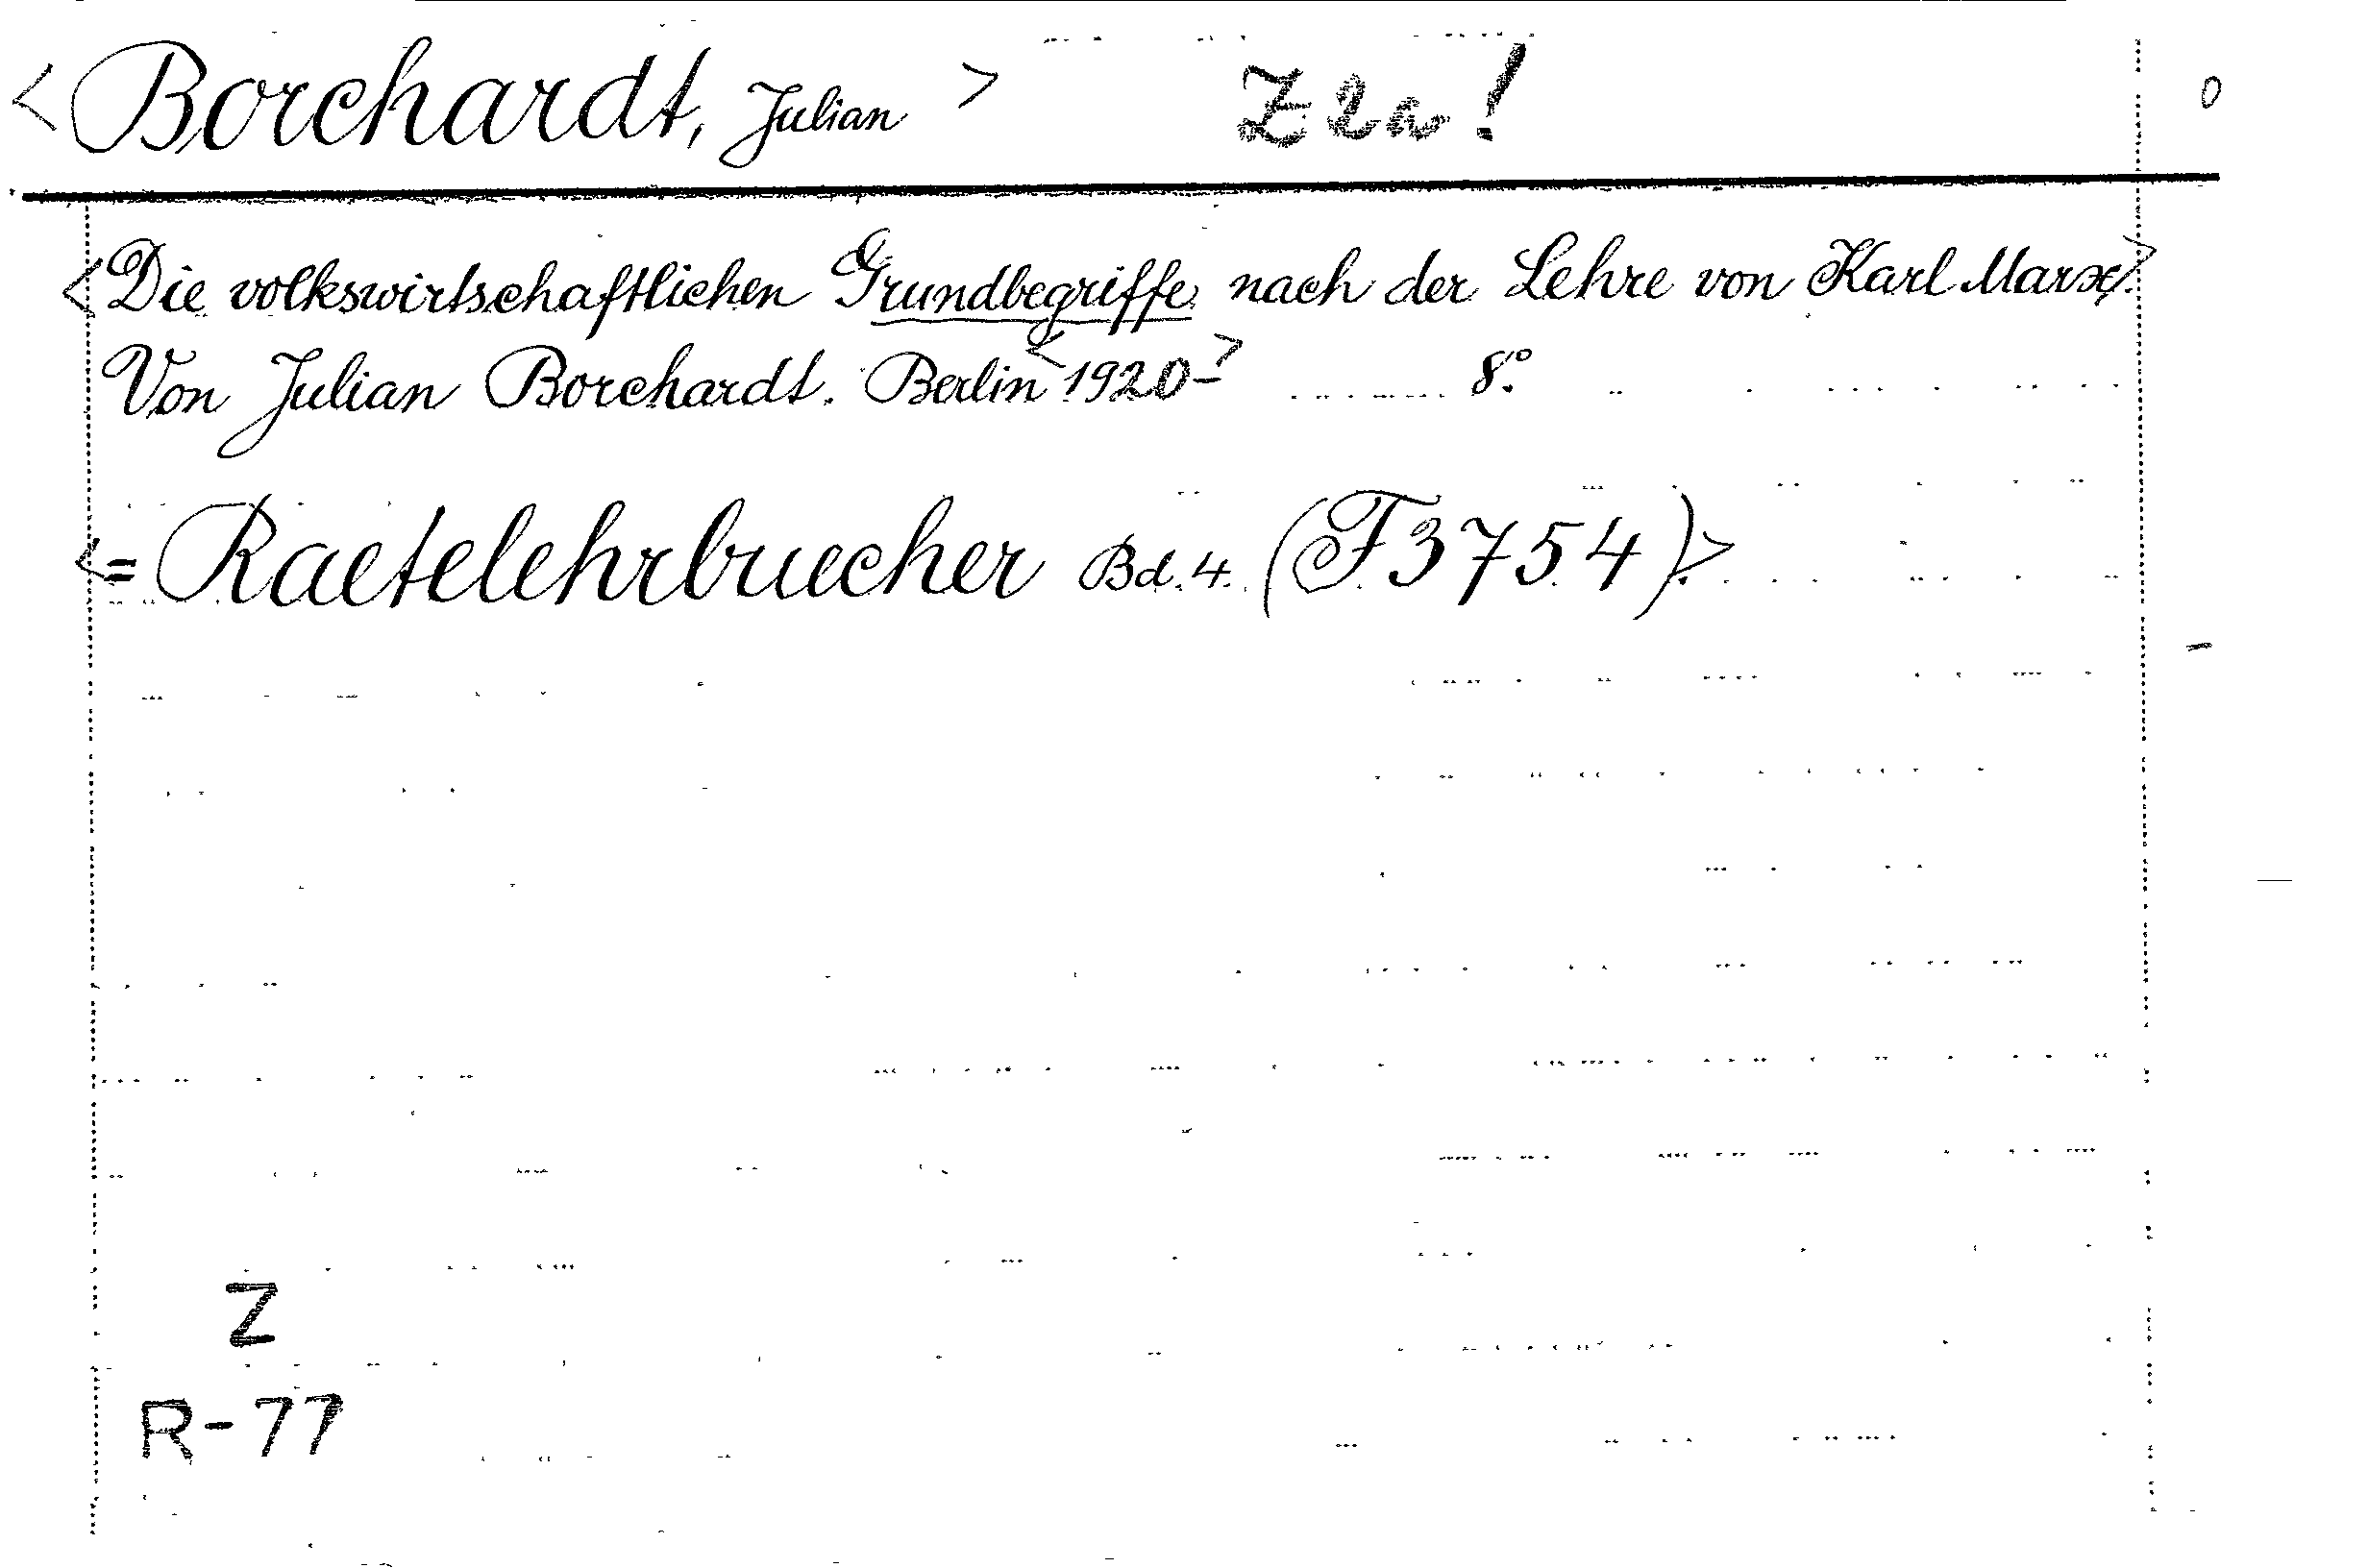 <Borchardt, Julian> Z 2a!
<Die volkswirtschaftlichen Grundbegriffe nach der Lehre von Karl Marx>.
Von Julian Borchardt. Berlin <1920-> 8°.
<= Raetelehrbuecher Bd. 4. (F 3754).>
Z
R-77